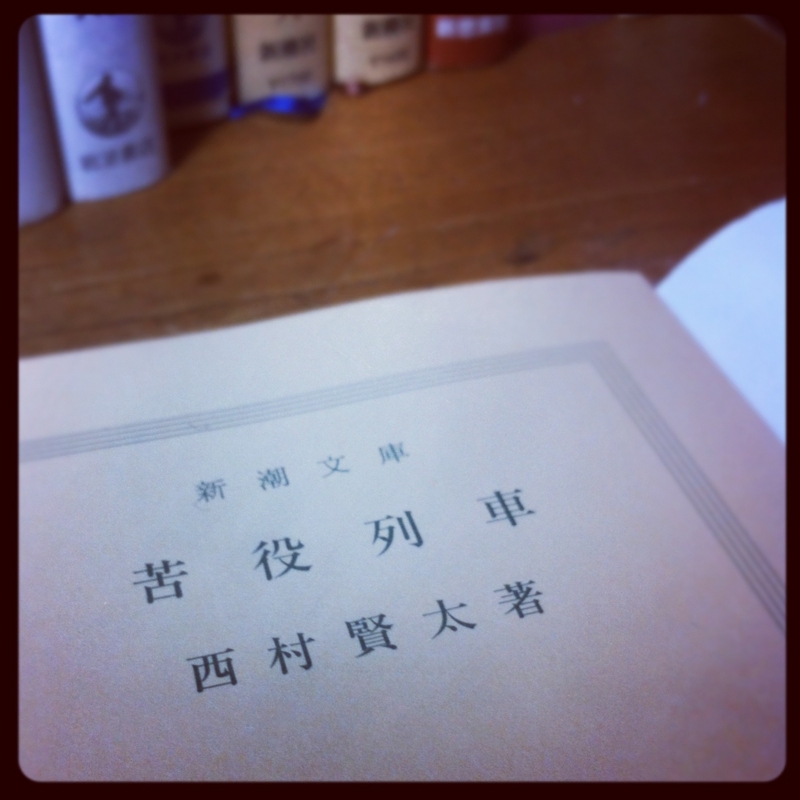 新潮文庫
苦役列車
西村賢太著